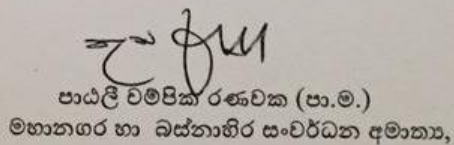 පාඨලී චම්පික රණවක (පා.ම.)
මහානගර හා බස්නාහිර සංවර්ධන අමාත්‍ය,